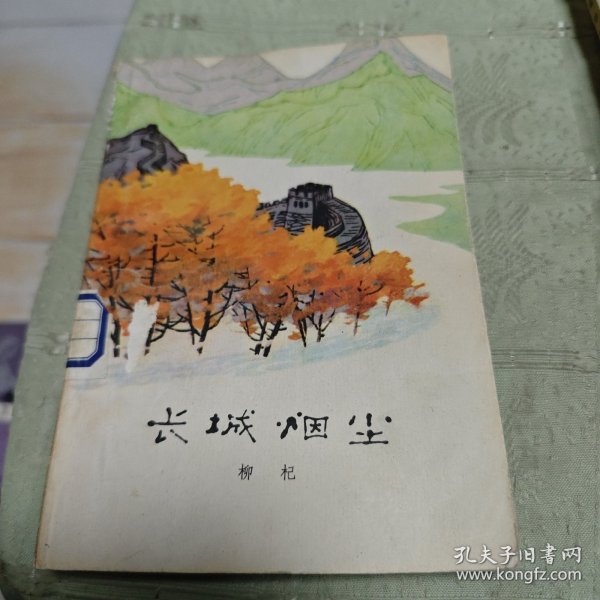 长城烟尘
柳杞
孔夫子旧书网
www.kongfz.com